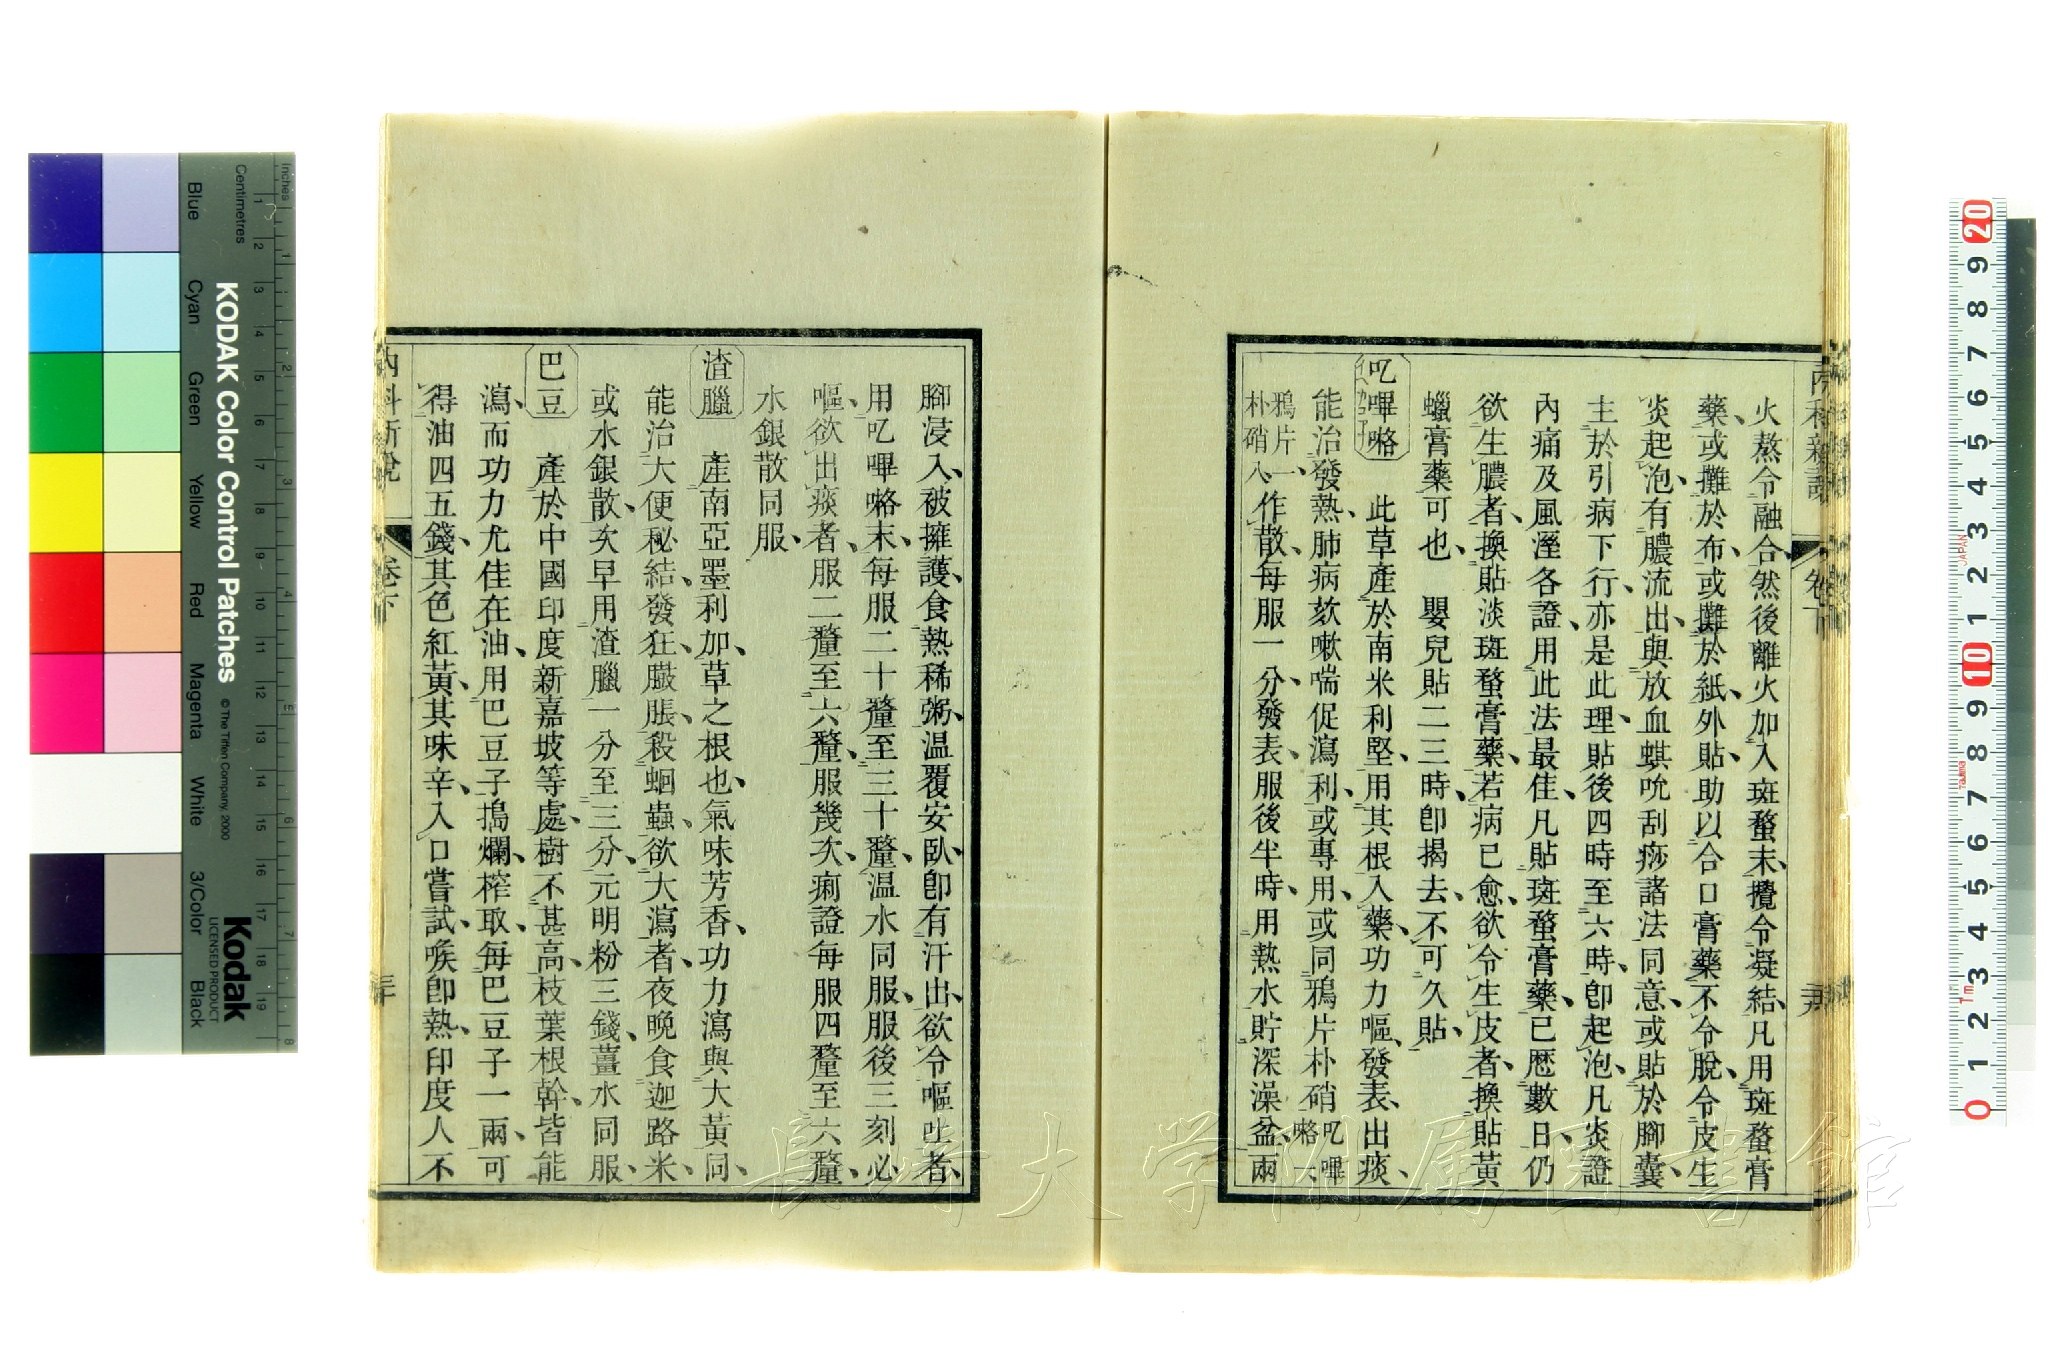 火熬令融合、然後離火加入斑蝥末、攪令凝結、凡用斑蝥膏
藥、或攤於布、或攤於紙、外貼、助以合口膏藥、不令脫、令皮生
炎起泡、有膿流出、與放血蜞吮刮痧諸法同意、或貼於腳囊、
主於引病下行、亦是此理、貼後四時至六時、卽起泡、凡炎證
內痛及風溼各證、用此法最佳、凡貼斑蝥膏藥、已歷數日、仍
欲生膿者、換貼淡斑蝥膏藥、若病已愈、欲令生皮者、換貼黃
蠟膏藥可也、嬰兒貼二三時、卽揭去、不可久貼、
吃嗶咯
此草產於南米利堅、用其根入藥、功力嘔、發表、出痰、
能治發熱、肺病、欬嗽喘促、瀉利、或專用、或同鴉片朴硝吃嗶咯一
鴉片一、朴硝八、作散、每服一分、發表、服後半時、用熱水貯深澡盆、兩
內科新說
卷下
腳浸入、被擁護、食熱稀粥、温覆安臥、卽有汗出、欲令嘔吐者、
用吃嗶咯末、每服二十釐至三十釐、温水同服、服後三刻必
嘔、欲出痰者、服二釐至六釐、服幾次、痢證每服四釐至六釐、
水銀散同服、
渣臘
產南亞墨利加、草之根也、氣味芳香、功力瀉、與大黃同、
能治大便秘結、發狂、臌脹、殺蛔蟲、欲大瀉者、夜晚食迦路米、
或水銀散、次早用渣臘一分至三分、元明粉三錢、薑水同服、
巴豆
產於中國印度新嘉坡等處、樹不甚高、枝葉根幹、皆能
瀉、而功力尤佳在油、用巴豆子搗爛、榨取、每巴豆子一兩、可
得油四五錢、其色紅黃、其味辛、入口嘗試、喉卽熱、印度人不
內科新說
卷下
三十
KODAK Color Control Patches
© The Tiffen Company, 2000
Kodak
LICENSED PRODUCT
Blue
Cyan
Green
Yellow
Red
Magenta
White
3/Color
Black
Inches
Centimetres
1 2 3 4 5 6 7 8 9 10 11 12 13 14 15 16 17 18 19
1 2 3 4 5 6 7 8
20 9 8 7 6 5 4 3 2 1 10 9 8 7 6 5 4 3 2 1 0
JAPAN
長崎大学附属図書館